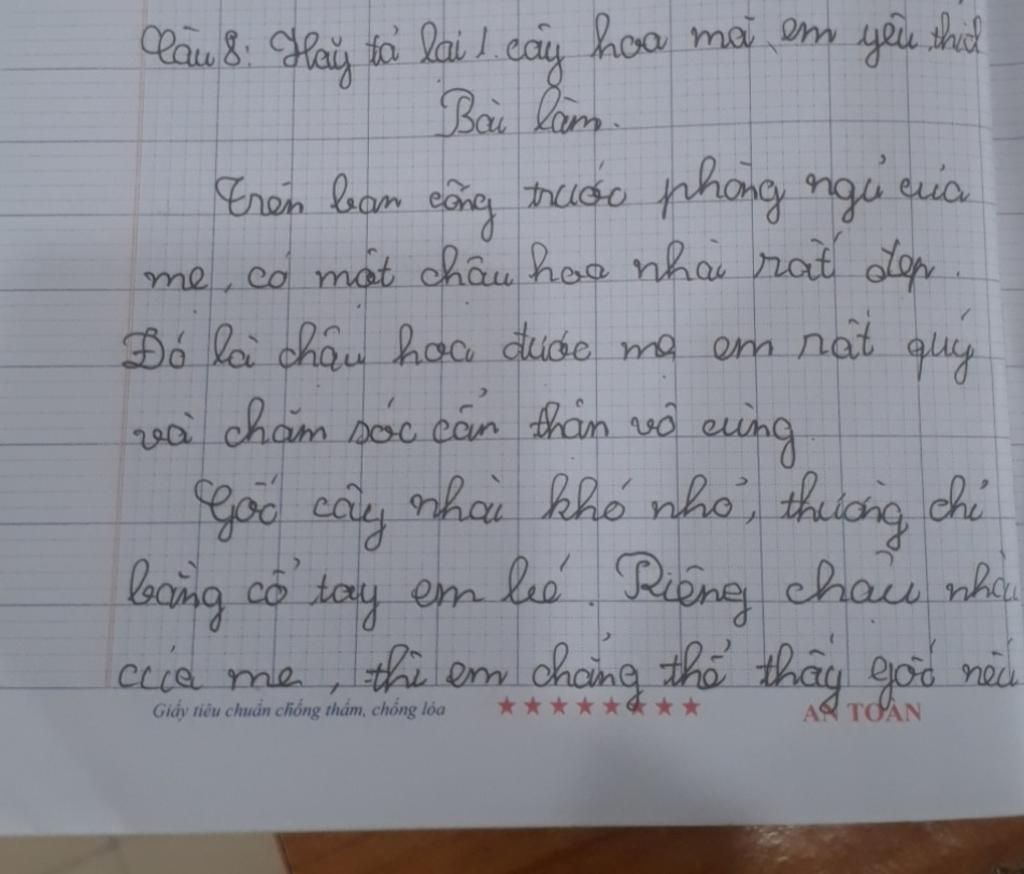 Câu 8: Hãy tả lại 1 cây hoa mà em yêu thíc
Bài làm.
Trên ban công trước phòng ngủ của
mẹ, có một chậu hoa nhài rất đẹp.
Đó là chậu hoa được mẹ em rất quý
và chăm sóc cẩn thận vô cùng
Gốc cây nhài khó nhỏ, thường chỉ
bằng cổ tay em bé. Riêng chậu nhài
của mẹ, thì em chẳng thể thấy gốc nếu
Giấy tiêu chuẩn chống thấm, chống lóa ★★★★★★★★ AN TOÀN